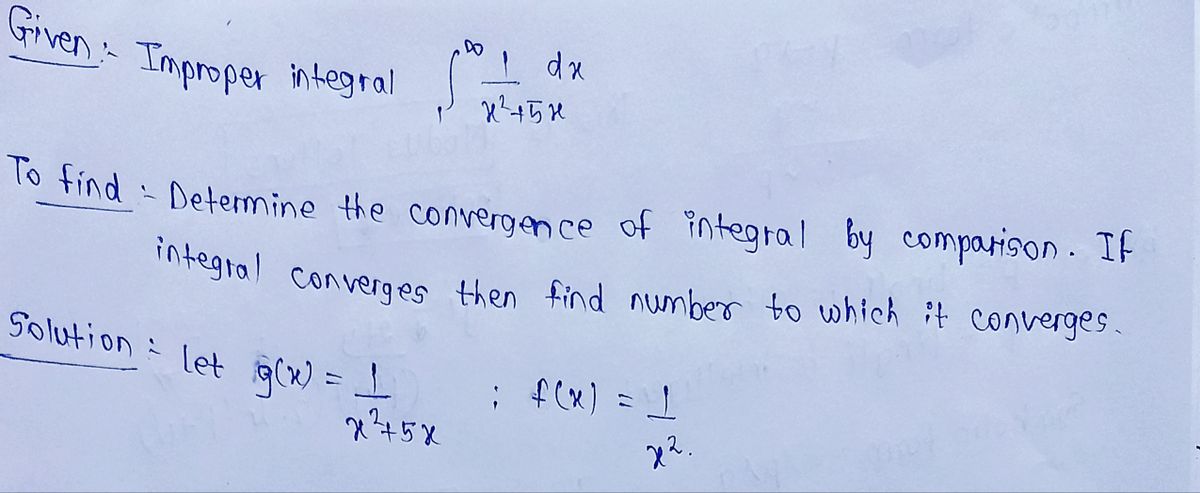 Given :- Improper integral ∫₁^∞ 1/(x²+5x) dx
To find :- Determine the convergence of integral by comparison. If
integral converges then find number to which it converges.
Solution :- let g(x) = 1/(x²+5x) ; f(x) = 1/x².